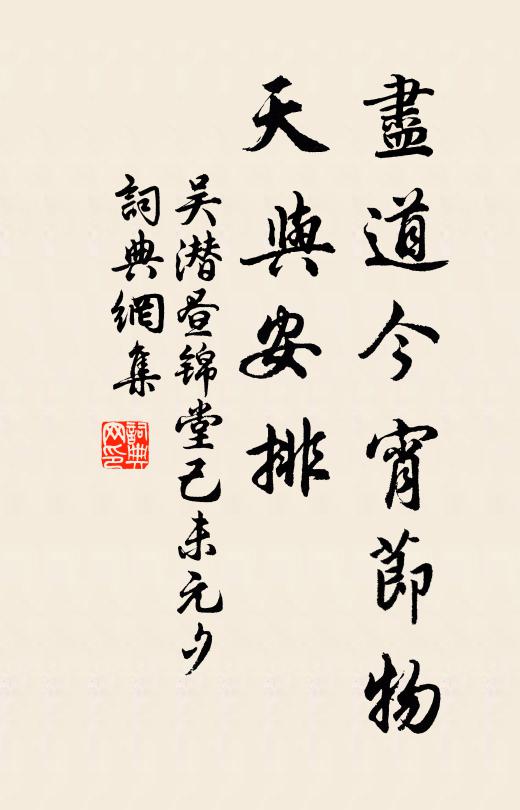 盡道今宵節物
天與安排
吴潜昼锦堂己未元夕
詞典網集
詞典網印